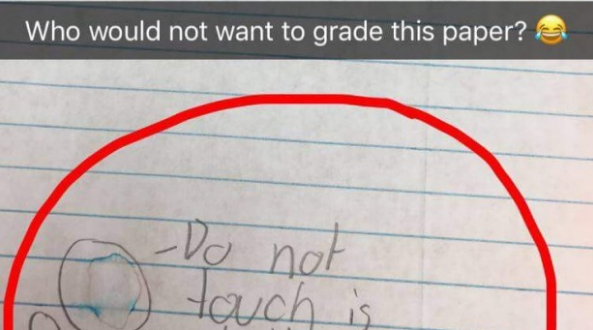 Who would not want to grade this paper? 😂
-Do not
touch is